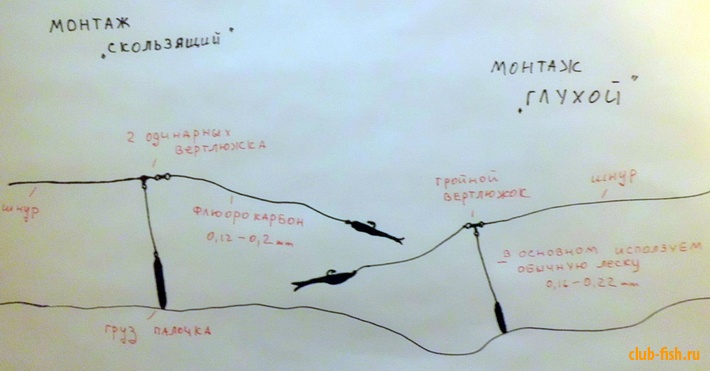 МОНТАЖ
„СКОЛЬЗЯЩИЙ"
2 ОДИНАРНЫХ
ВЕРТЛЮЖКА
ШНУР
ФЛЮОРОКАРБОН
0,12-0,2mm
ГРУЗ ПАЛОЧКА
МОНТАЖ
„ГЛУХОЙ"
ТРОЙНОЙ
ВЕРТЛЮЖОК
ШНУР
В ОСНОВНОМ ИСПОЛЗУЕМ
ОБЫЧНУЮ ЛЕСКУ
0,16-0,22mm
club-fish.ru